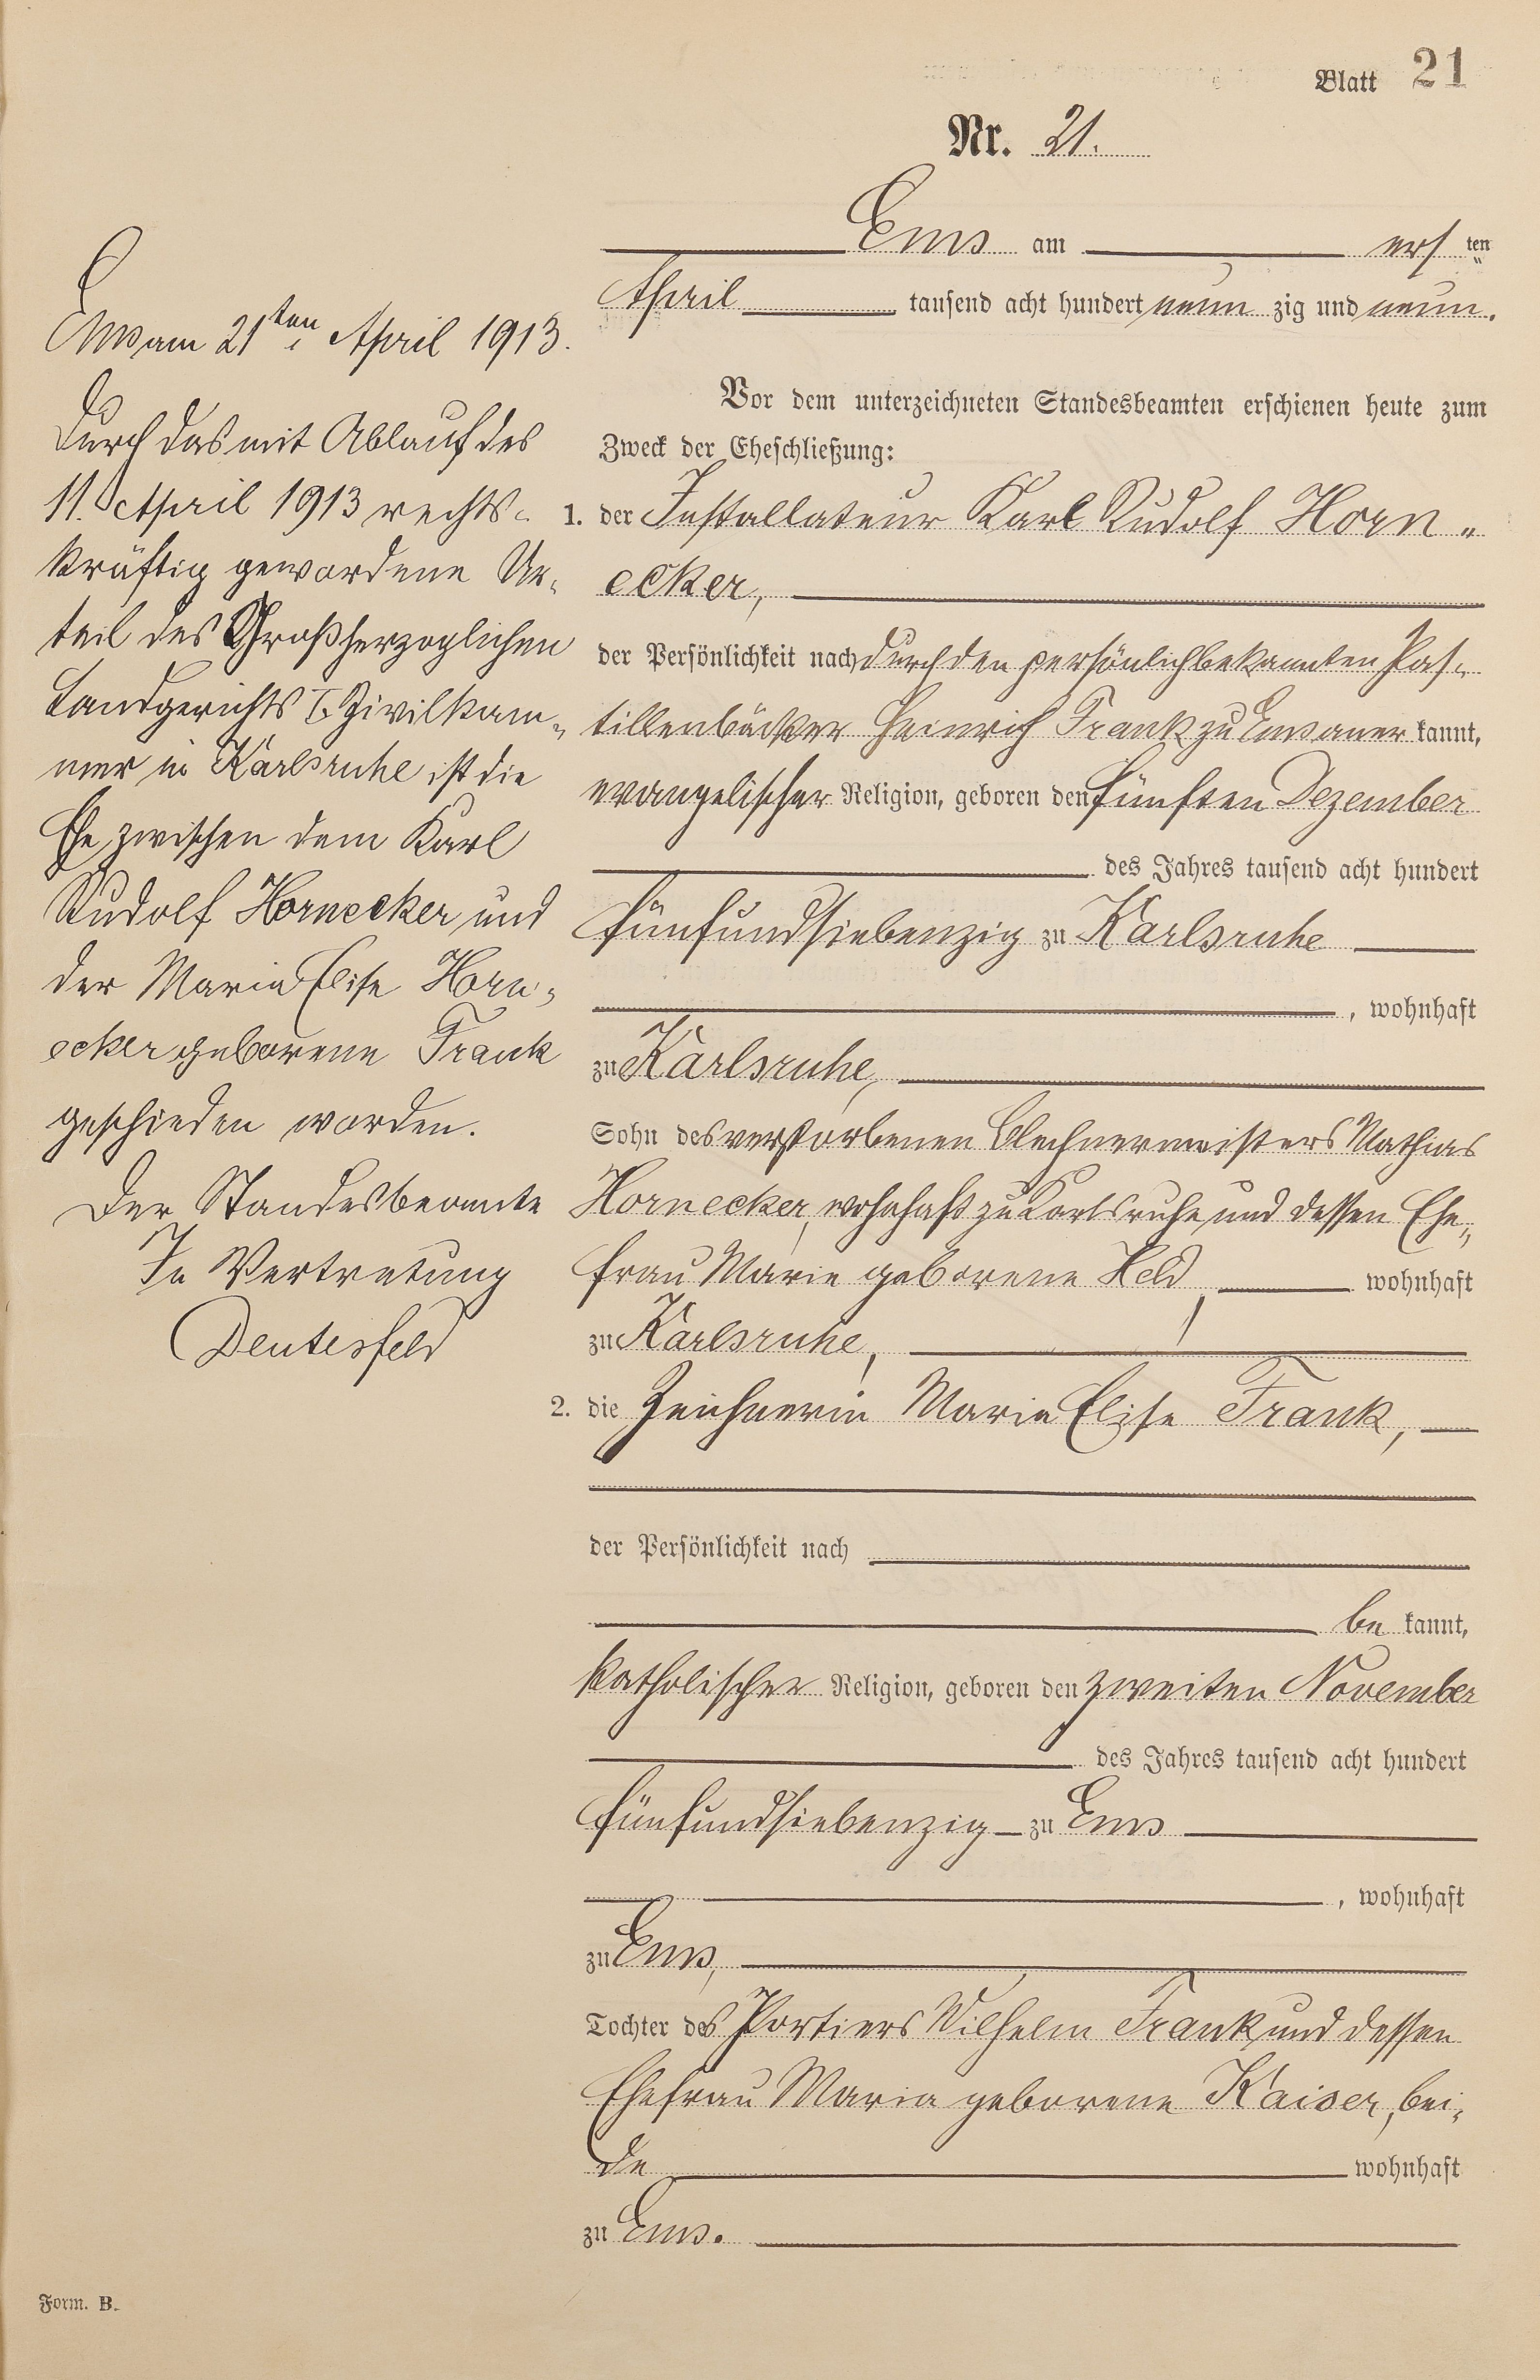 Blatt 21
Nr. 21.
Ems am ersten
April tausend acht hundert neunzig und neun.
Vor dem unterzeichneten Standesbeamten erschienen heute zum
Zweck der Eheschließung:
1. der Installateur Karl Rudolf Horn„
ecker,
der Persönlichkeit nach durch den persönlich bekannten Pas-
tillenbäcker Heinrich Frank zu Ems aner kannt,
evangelischer Religion, geboren den fünften Dezember
des Jahres tausend acht hundert
fünfundsiebenzig zu Karlsruhe
, wohnhaft
zu Karlsruhe,
Sohn des verstorbenen Blechnermeisters Mathias
Hornecker, wohnhaft zu Karlsruhe und dessen Ehe„
frau Marie geborene Held, wohnhaft
zu Karlsruhe,
2. die Zeichnerin Maria Elise Frank,
der Persönlichkeit nach
be kannt,
katholischer Religion, geboren den zweiten November
des Jahres tausend acht hundert
fünfundsiebenzig zu Ems
, wohnhaft
zu Ems,
Tochter des Portiers Wilhelm Frank und dessen
Ehefrau Maria geborene Kaiser, bei-
de wohnhaft
zu Ems.
Ems am 21ten April 1913.
Durch das mit Ablauf des
11. April 1913 rechts-
kräftig gewordene Ur-
teil des Großherzoglichen
Landgerichts I. Zivilkam-
mer in Karlsruhe ist die
Ehe zwischen dem Karl
Rudolf Hornecker und
der Maria Elise Horn-
ecker geborene Frank
geschieden worden.
Der Standesbeamte
In Vertretung
Deutesfeld
Form. B.